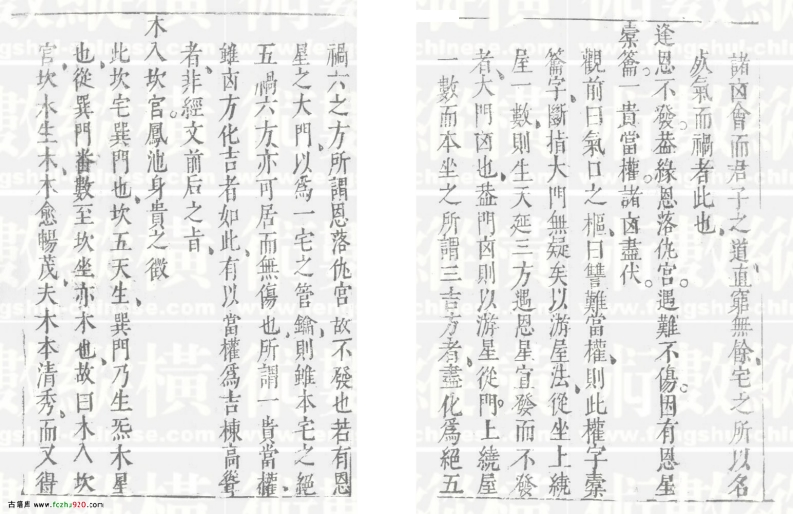 諸凶會而君子之道直窮無餘宅之所以名
炁氣而禍者此也
逢恩不發葢緣恩落仇宮遇難不傷因有恩星
橐籥一貴當權諸凶盡伏
觀前曰氣口之樞曰讐難當權則此權字橐
籥字斷指大門無疑矣以游星法從坐上繞
屋一數則生天延三方遇恩星宜發而不發
者大門凶也葢門凶則以游星從門上繞屋
一數而本坐之所謂三吉方者盡化爲絕五
禍六之方所謂恩落仇宮故不發也若有恩
星之大門以爲一宅之管鑰則雖本宅之絕
五禍六方亦可居而無傷也所謂一貴當權
雖凶方化吉者如此有以當權爲吉棟高聳
者非經文前后之旨
木入坎宮鳳池身貴之徵
此坎宅巽門也坎五天生巽門乃生炁木星
也從巽門番數至坎坐亦木也故曰木入坎
宮坎水生木木愈暢茂夫木本清秀而又得
古籍库 www.fczhj920.com